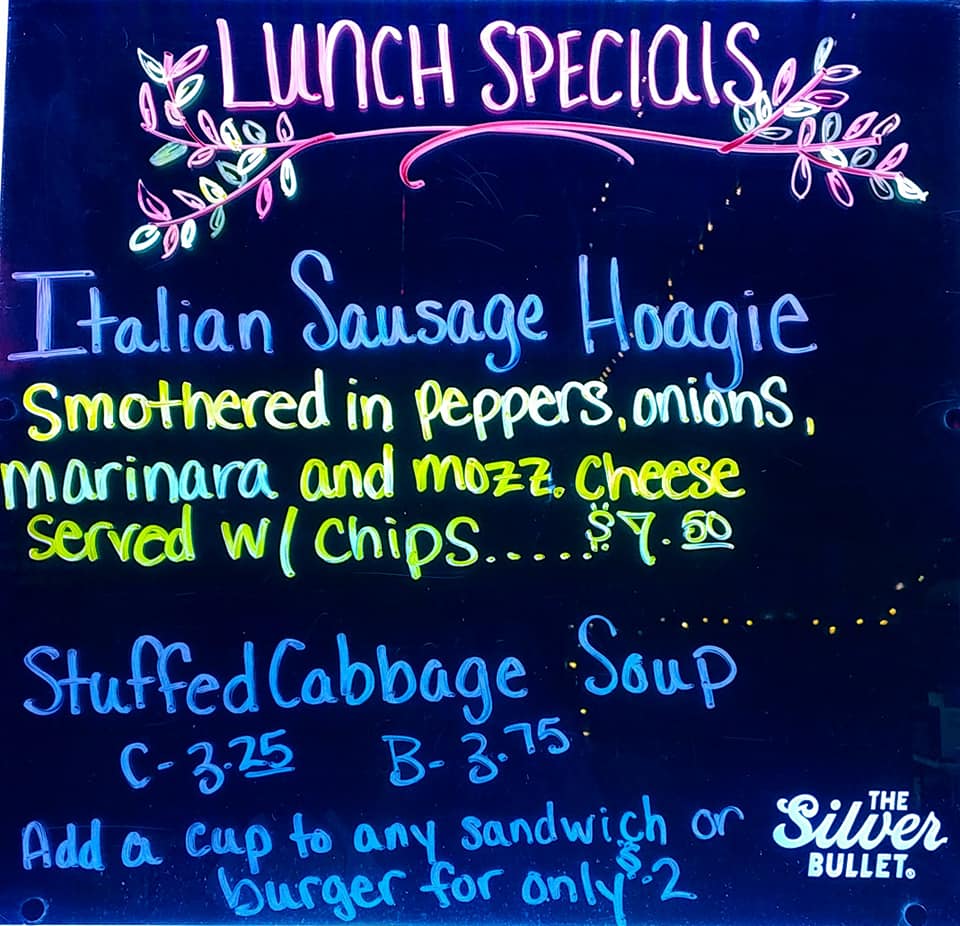 LUNCH SPECIALS
Italian Sausage Hoagie
Smothered in peppers, onions,
marinara and mozz. Cheese
served w/ chips.....$7.50
Stuffed Cabbage Soup
C-3.25 B-3.75
Add a cup to any sandwich or
burger for only $.2
THE
Silver
BULLET.